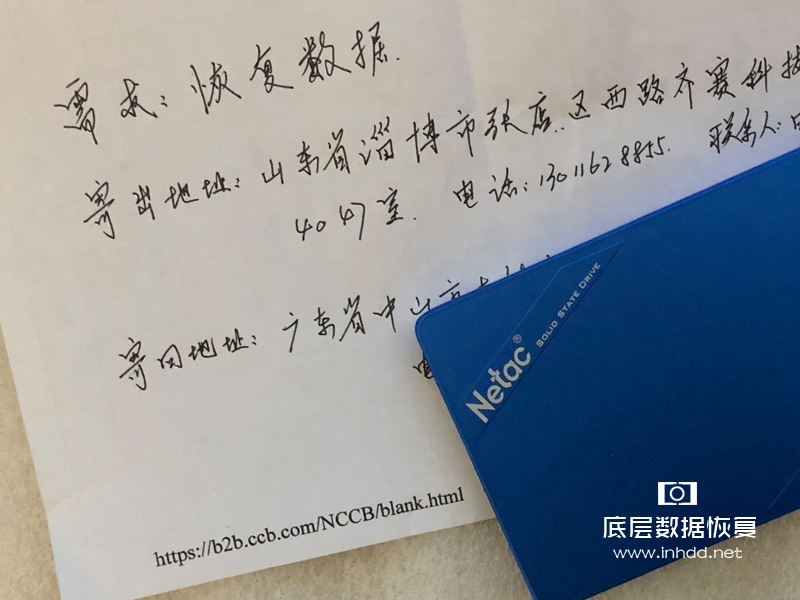 需求：恢复数据.
寄出地址：山东省淄博市张店.区西路齐赛科技
4047室. 电话：13011628855. 联系人：
寄回地址：广东省中山市
Netac®
SOLID STATE DRIVE
https://b2b.ccb.com/NCCB/blank.html
底层数据恢复
www.inhdd.net